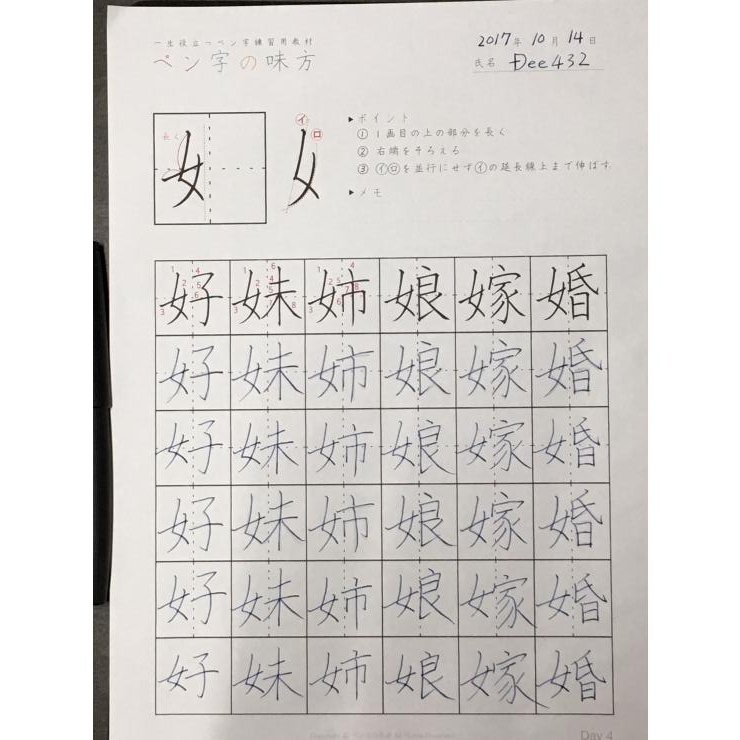 一生役立つペン字練習用教材
ペン字の味方
2017年 10月 14日
氏名 Đee432
長く
女
イ
ロ
▶ポイント
① 1画目の上の部分を長く
② 右端をそろえる
③ イロを並行にせずイの延長線上まで伸ばす
▶メモ
好 妹 姉 娘 嫁 婚
好 妹 姉 娘 嫁 婚
好 妹 姉 娘 嫁 婚
好 妹 姉 娘 嫁 婚
好 妹 姉 娘 嫁 婚
好 妹 姉 娘 嫁 婚
Day 4